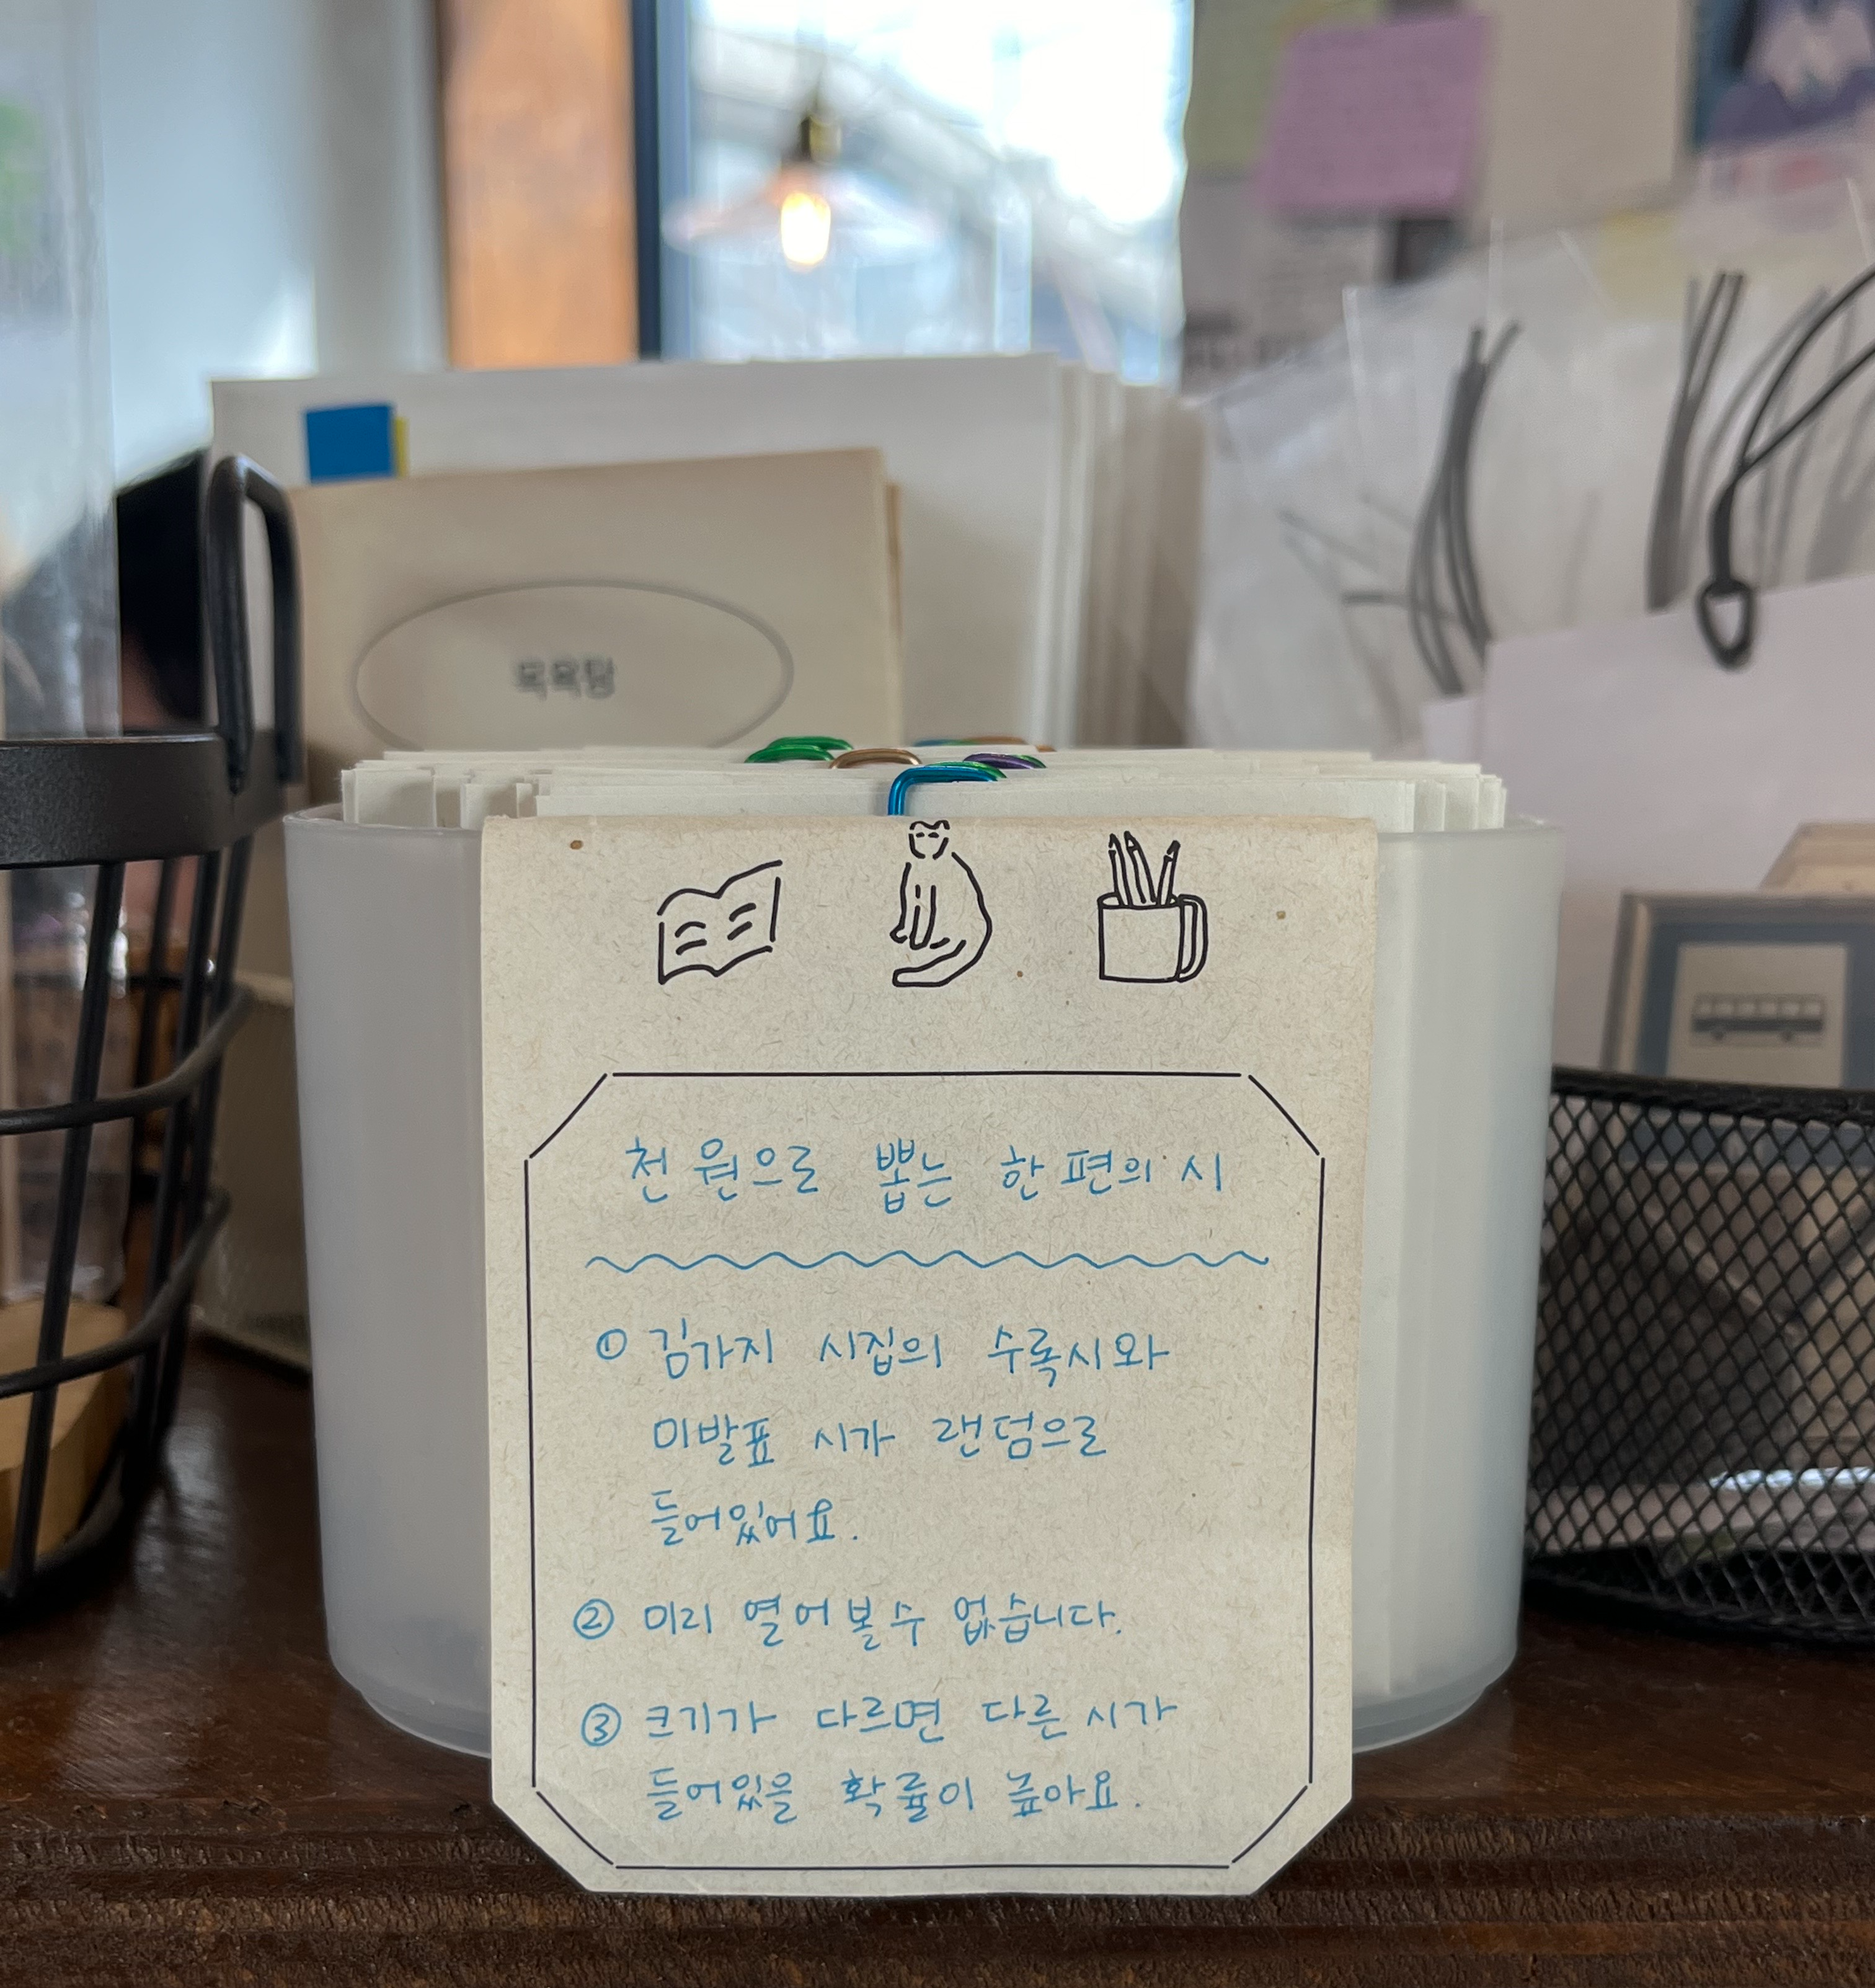 목욕탕
천 원으로 뽑는 한 편의 시
① 김가지 시집의 수록시와
미발표 시가 랜덤으로
들어있어요.
② 미리 열어볼 수 없습니다.
③ 크기가 다르면 다른 시가
들어있을 확률이 높아요.